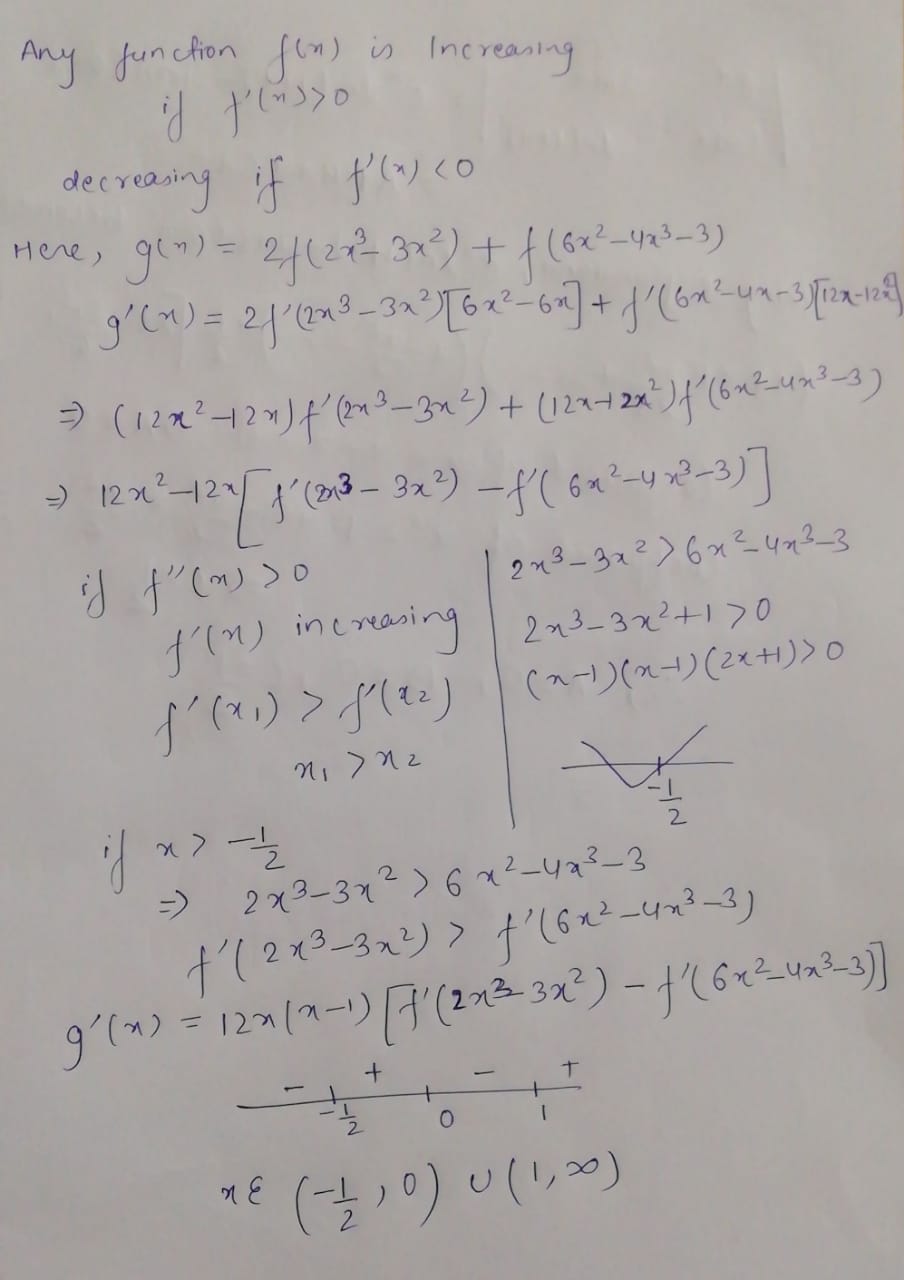 Any function f(x) is Increasing
if f'(x)>0
decreasing if f'(x) <0
Here, g(x) = 2f(2x³-3x²) + f(6x²-4x³-3)
g'(x) = 2f'(2x³-3x²)[6x²-6x] + f'(6x²-4x-3)[12x-12x²]
⇒ (12x²-12x)f'(2x³-3x²) + (12x-12x²)f'(6x²-4x³-3)
⇒ 12x²-12x[f'(2x³-3x²) - f'(6x²-4x³-3)]
if f''(x) >0
f'(x) increasing
f'(x₁) > f'(x₂)
x₁ > x₂
2x³-3x² > 6x²-4x³-3
2x³-3x²+1 >0
(x-1)(x-1)(2x+1)>0
-1/2
if x> -1/2
⇒ 2x³-3x² > 6x²-4x³-3
f'(2x³-3x²) > f'(6x²-4x³-3)
g'(x) = 12x(x-1) [f'(2x³-3x²) - f'(6x²-4x³-3)]
- + - +
-1/2 0 1
x ε (-1/2, 0) ∪ (1,∞)